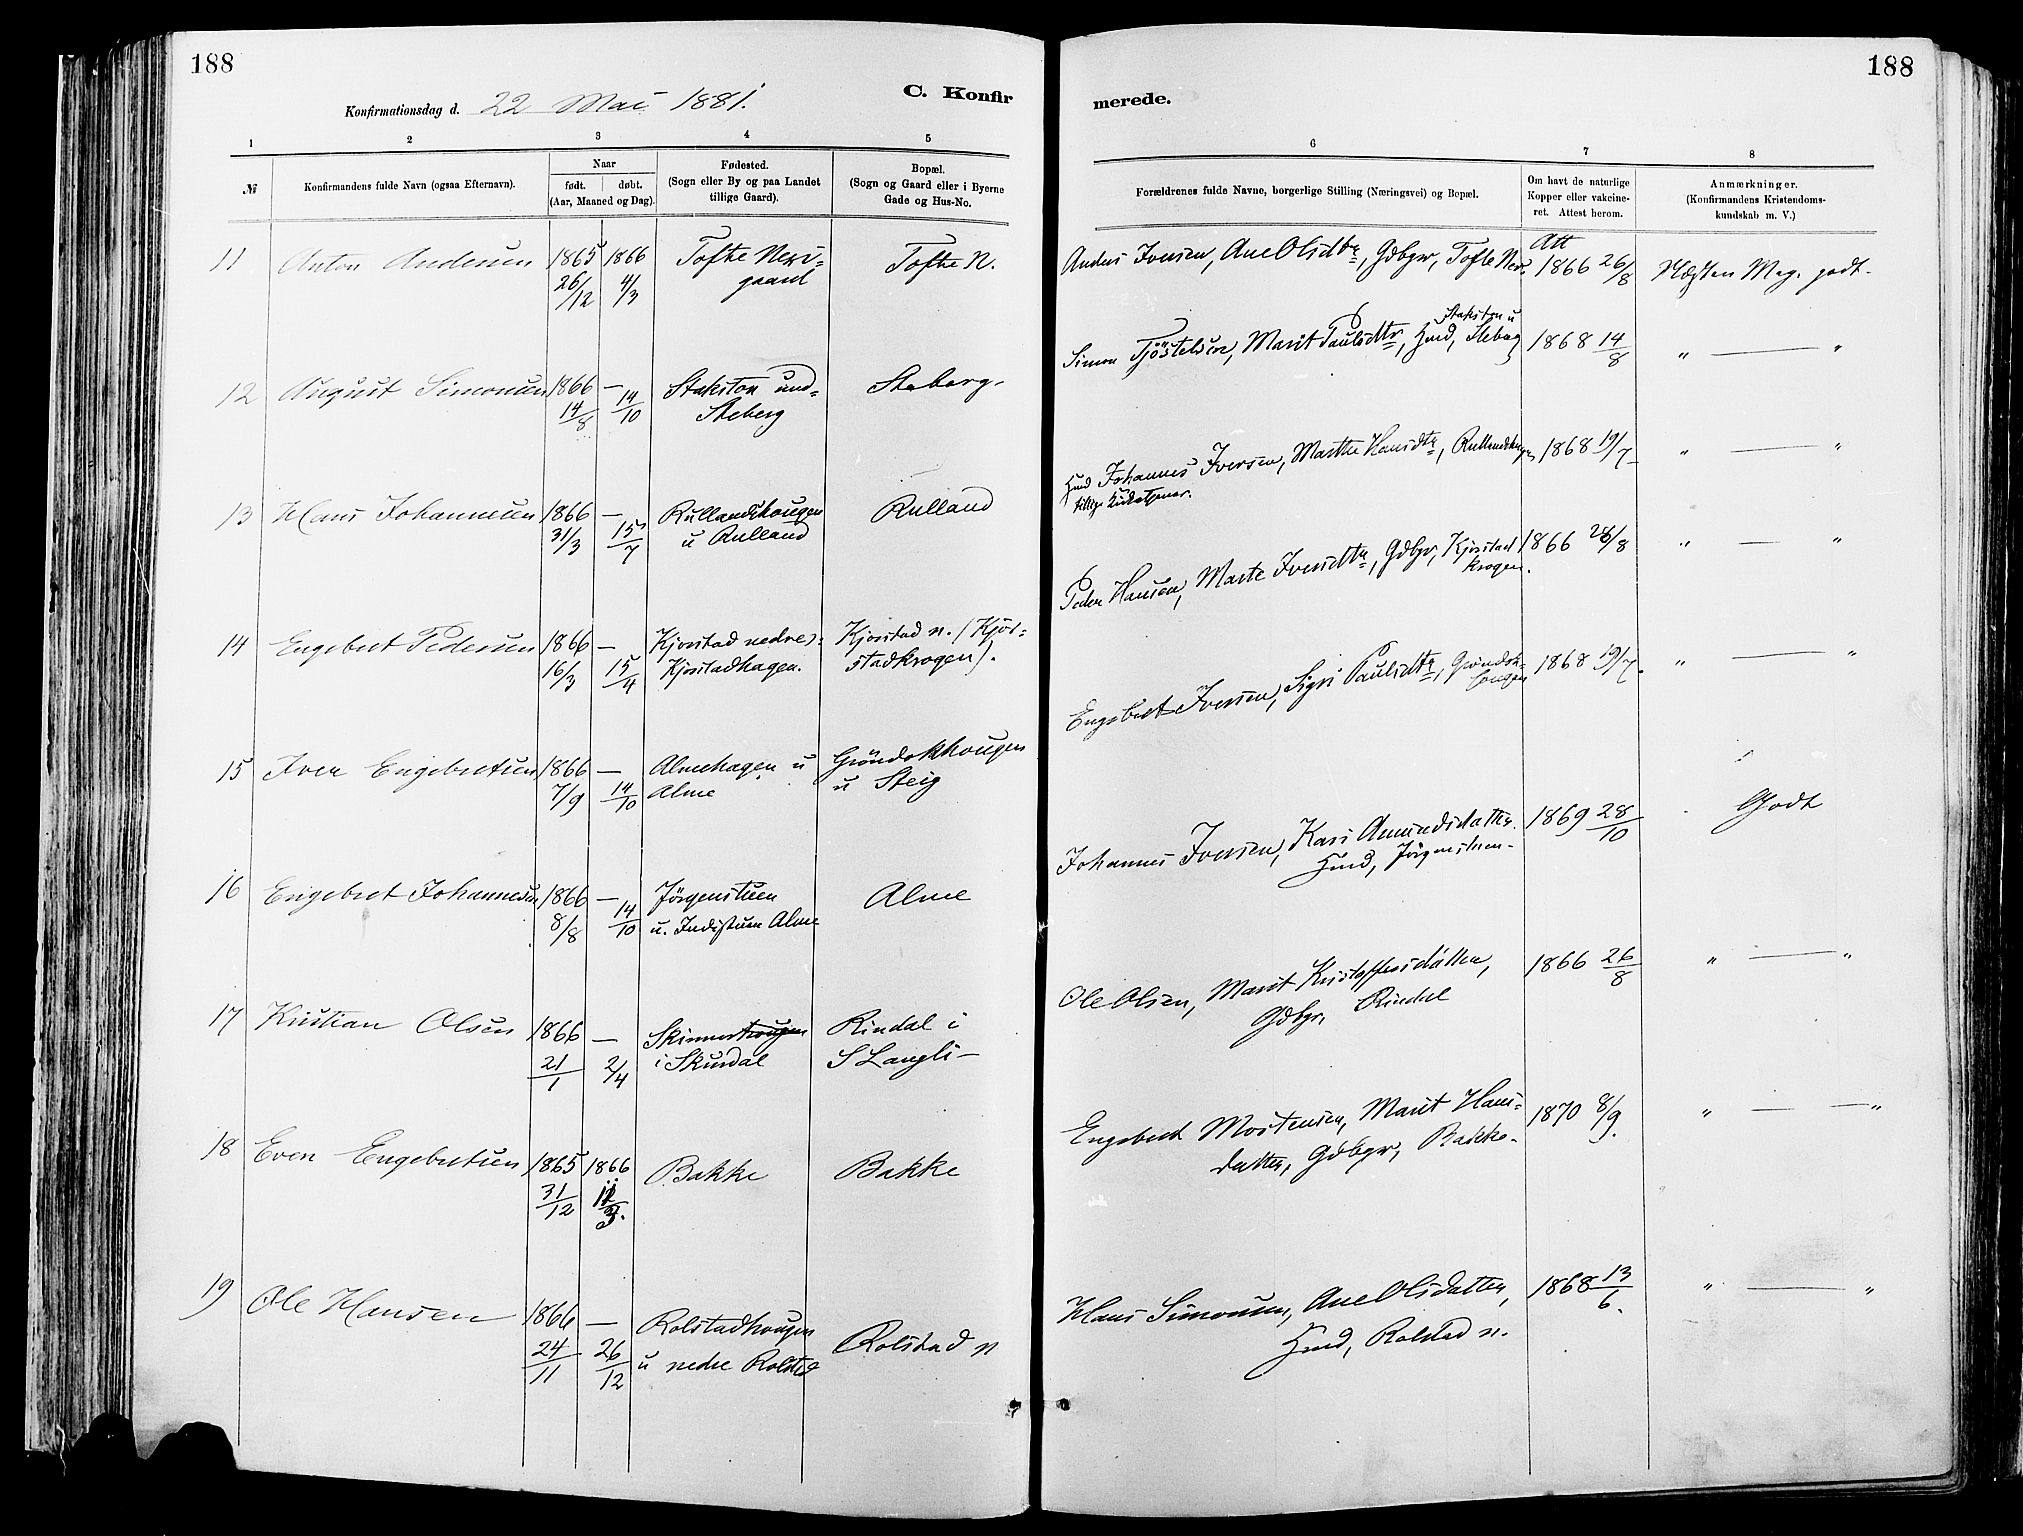 188
188
Konfirmationsdag d. 22 Mai 1881.
C. Konfir
merede.
1 2 3 4 5
6 7 8
№
Konfirmandens fulde Navn (ogsaa Efternavn).
Naar
født. døbt.
(Aar, Maaned og Dag).
Fødested.
(Sogn eller By og paa Landet
tillige Gaard).
Bopæl.
(Sogn og Gaard eller i Byerne
Gade og Hus-No.
Forældrenes fulde Navne, borgerlige Stilling (Næringsvei) og Bopæl.
Om havt de naturlige
Kopper eller vakcine-
ret. Attest herom.
Anmærkninger.
(Konfirmandens Kristendoms-
kundskab m. V.)
11 Anton Andersen 1865 1866 Tofte Neri- Tofte N.
26/12 4/3 gaard
Anders Iversen, Ane Olsdtr, Gdbgr, Tofte Ner. Att
1866 26/8 Næsten Meg. godt.
12 August Simonsen 1866 — Stakston und- Steberg.
14/8 14/10 Steberg
Stakston u
Simon Tjöstelsen, Marit Paulsdtr, Hmd, Steberg 1868 14/8 " — "
13 Hans Johannesen 1866 — Rullandshougen Rulland
31/3 15/7 u Rulland
Hmd Johannes Iversen, Marthe Hansdtr, 1868 19/7 " — "
tillige
14 Engebret Pedersen 1866 — Kjorstad nedre): Kjorstad n. (Kjör-
16/3 15/4 Kjorstadhagen. stadkrogen).
Peder Hansen, Marte Iversdtr, Gdbgr, Kjorstad 1866 26/8 " — "
krogen.
15 Iver Engebretsen 1866 — Almehagen u Gröndokhougen
7/9 14/10 Alme u Steig
Engebret Iversen, Sigri Paulsdtr, 1868 19/7. " — "
16 Engebret Johannesen 1866 — Jörgenstuen Alme
8/8 14/10 u. Indistuen Alme
Johannes Iversen, Kari Amundsdatter 1869 28/10 Godt
Hmd, Jörgenstuen.
17 Kristian Olsen 1866 — Skinnerhougen Rindal i
21/1 2/4 i Skurdal S Langli —
Ole Olsen, Marit Kristoffersdatter, 1866 26/8 " — "
Gdbgr, Rindal
18 Even Engebretsen 1865 1866 Bakke Bakke
31/12 11/3.
Engebret Mortensen, Marit Hans- 1870 8/9. " — "
datter, Gdbgr, Bakke.
19 Ole Hansen 1866 — Rolstadhougen Rolstad n
24/11 26/12 u nedre Rolstad
Hans Simonsen, Ane Olsdatter, 1868 13/6. " — "
Hmd, Rolstad n.